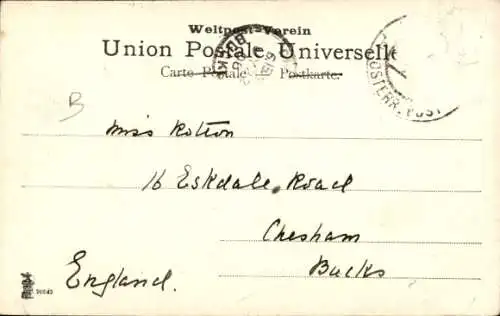 Weltpost-Verein
Union Postale Universelle
Carte Postale. Postkarte.
B
Miss Rotton
16 Eskdale Road
Chesham
Bucks
England.
ÖSTERR. POST